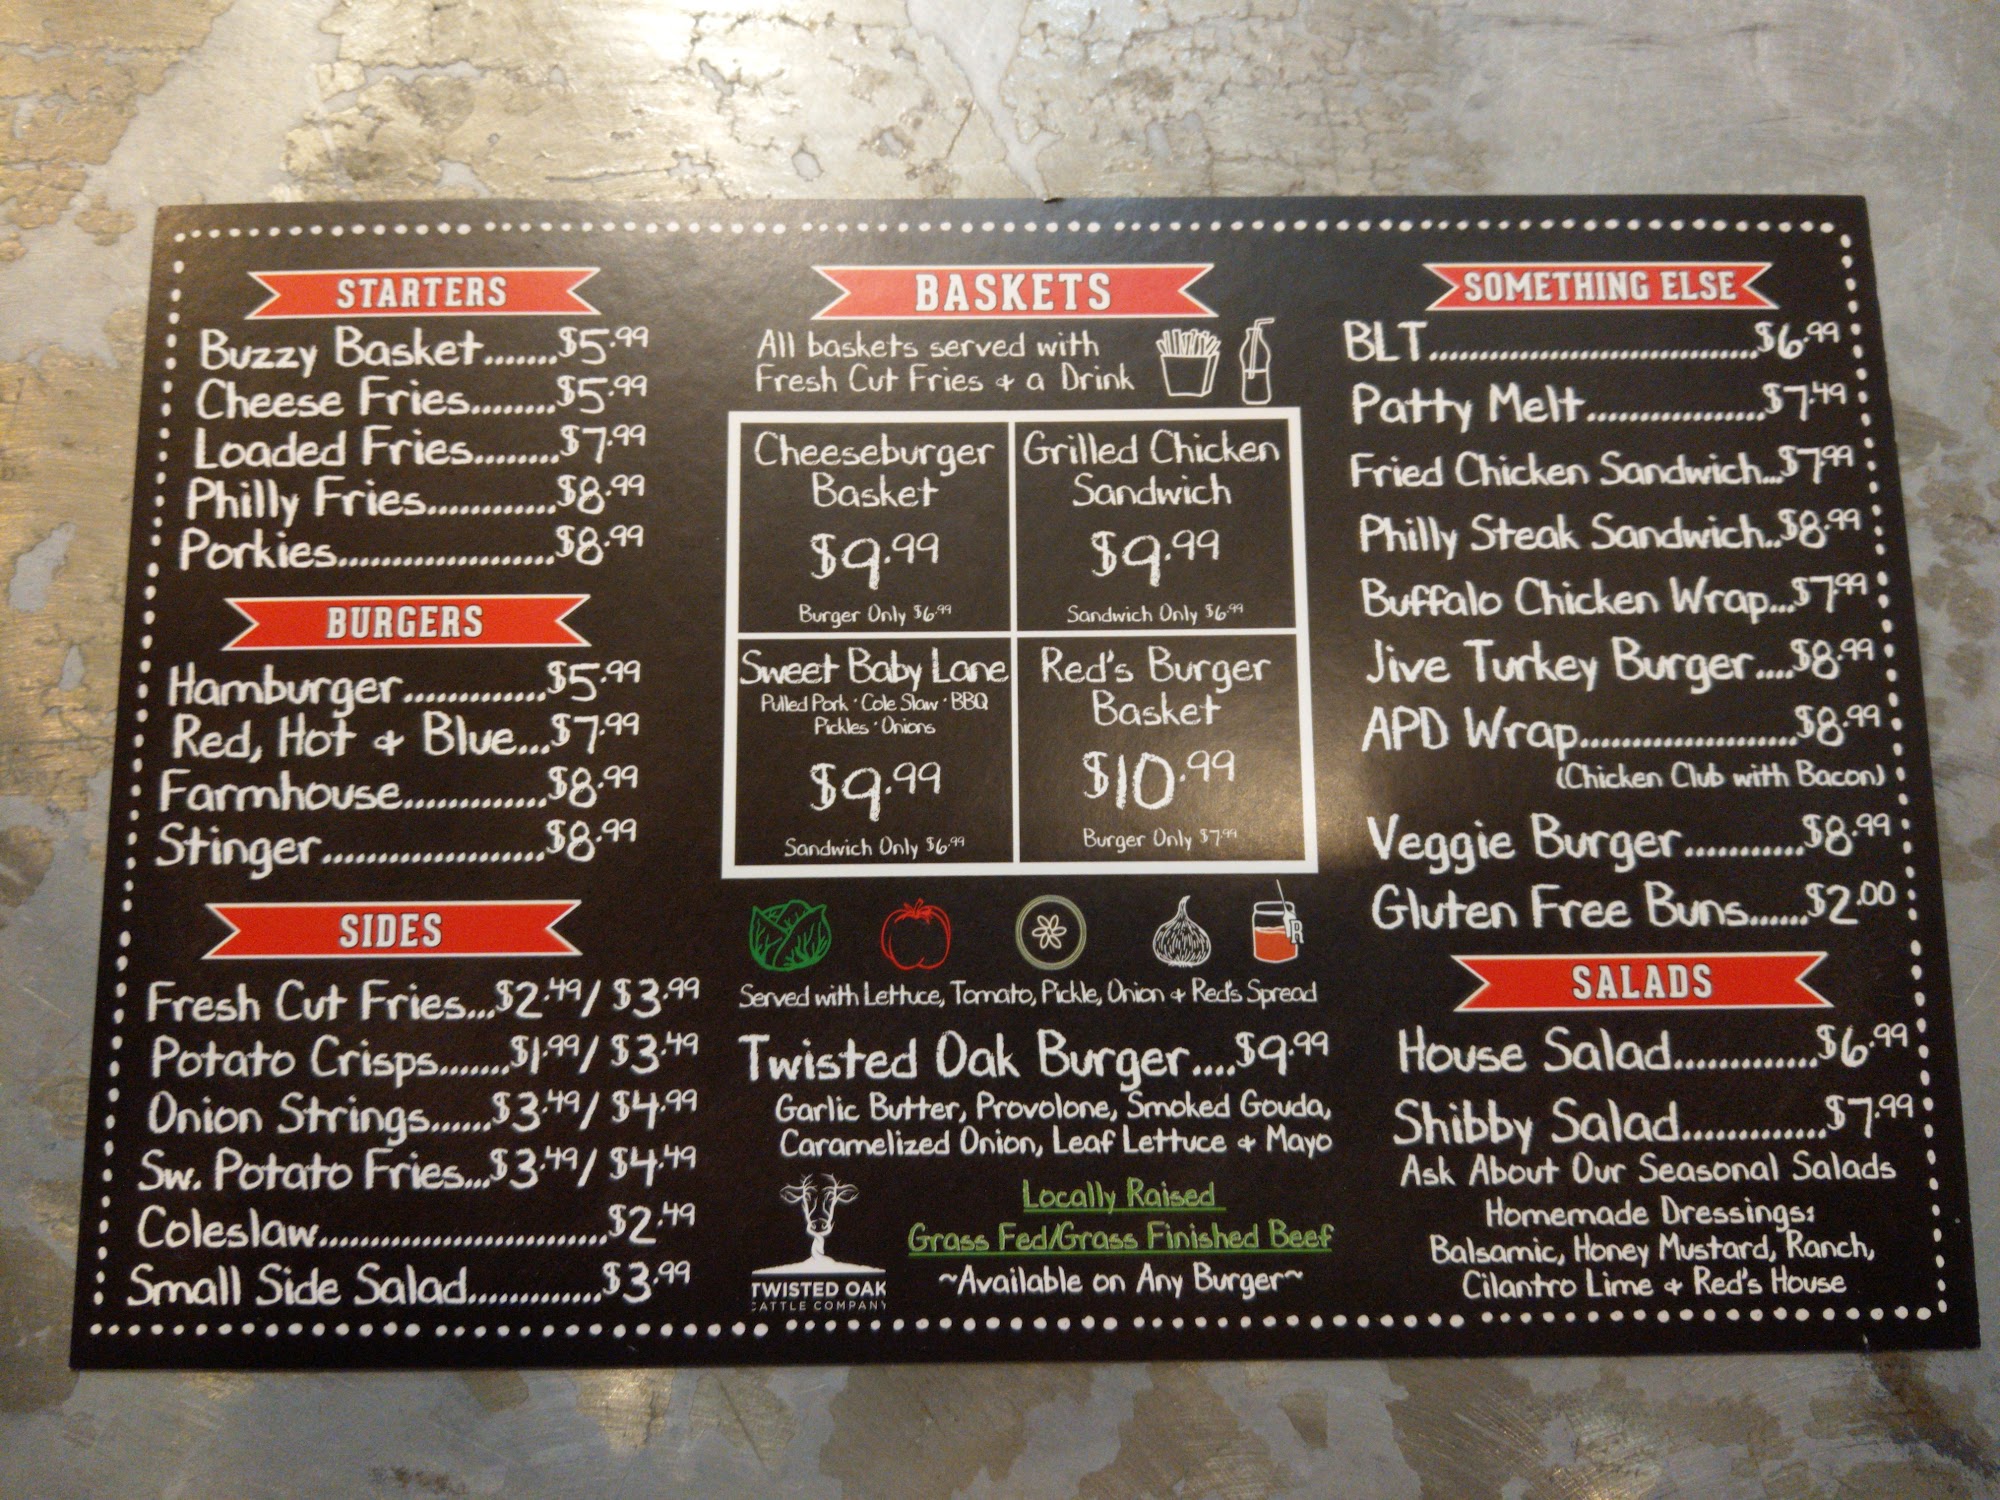 STARTERS
Buzzy Basket.......$5.99
Cheese Fries........$5.99
Loaded Fries........$7.99
Philly Fries............$8.99
Porkies....................$8.99
BURGERS
Hamburger.............$5.99
Red, Hot & Blue...$7.99
Farmhouse.............$8.99
Stinger....................$8.99
SIDES
Fresh Cut Fries...$2.49/ $3.99
Potato Crisps.......$1.99/ $3.49
Onion Strings......$3.49/ $4.99
Sw. Potato Fries...$3.49/ $4.49
Coleslaw............................$2.49
Small Side Salad.............$3.99
BASKETS
All baskets served with
Fresh Cut Fries & a Drink
Cheeseburger
Basket
$9.99
Burger Only $6.99
Grilled Chicken
Sandwich
$9.99
Sandwich Only $6.99
Sweet Baby Lane
Pulled Pork · Cole Slaw · BBQ
Pickles · Onions
$9.99
Sandwich Only $6.99
Red's Burger
Basket
$10.99
Burger Only $7.99
R
Served with Lettuce, Tomato, Pickle, Onion & Red's Spread
Twisted Oak Burger....$9.99
Garlic Butter, Provolone, Smoked Gouda,
Caramelized Onion, Leaf Lettuce & Mayo
TWISTED OAK
CATTLE COMPANY
Locally Raised
Grass Fed/Grass Finished Beef
~Available on Any Burger~
SOMETHING ELSE
BLT.................................$6.99
Patty Melt..................$7.49
Fried Chicken Sandwich...$7.99
Philly Steak Sandwich..$8.99
Buffalo Chicken Wrap...$7.99
Jive Turkey Burger....$8.99
APD Wrap......................$8.99
(Chicken Club with Bacon)
Veggie Burger...........$8.99
Gluten Free Buns......$2.00
SALADS
House Salad..............$6.99
Shibby Salad..............$7.99
Ask About Our Seasonal Salads
Homemade Dressings:
Balsamic, Honey Mustard, Ranch,
Cilantro Lime & Red's House